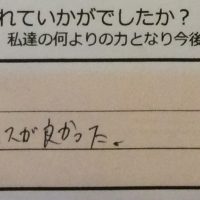 れていかがでしたか？
私達の何よりの力となり今後
スが良かった。